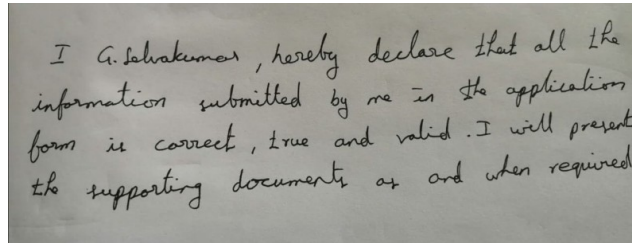 I G. Selvakumar, hereby declare that all the
information submitted by me in the application
form is correct, true and valid. I will present
the supporting documents as and when required